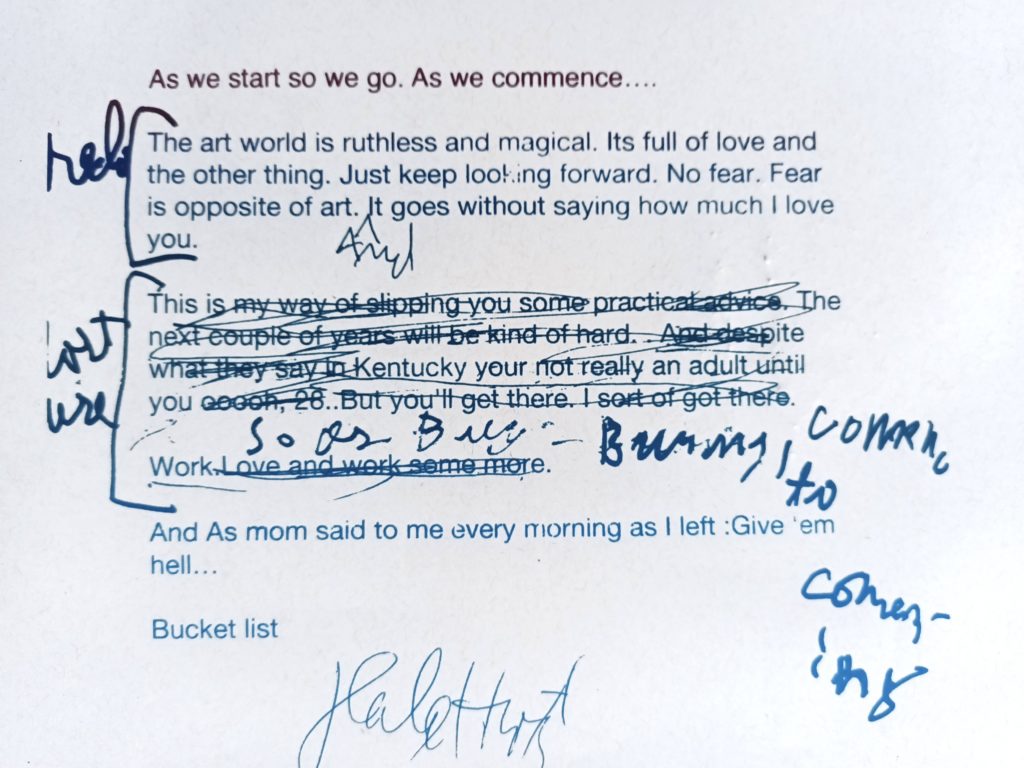 As we start so we go. As we commence....
The art world is ruthless and magical. Its full of love and
the other thing. Just keep looking forward. No fear. Fear
is opposite of art. It goes without saying how much I love
And
you.
This is my way of slipping you some practical advice. The
next couple of years will be kind of hard. . And despite
what they say in Kentucky your not really an adult until
you ooooh, 28..But you'll get there. I sort of got there.
So as
to
Work.Love and work some more.
And As mom said to me every morning as I left :Give 'em
hell...
Bucket list
ing